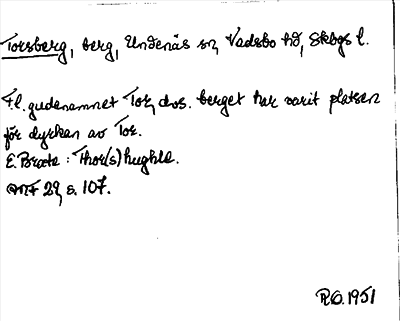 Torsberg, berg, Undenäs sn, Vadsbo hd, Skbgs l.
F.l. gudenamnet Tor, dvs. berget har varit platsen
för dyrkan av Tor.
E. Brate: Thor(s)hughle.
ANF 29, s. 107.
R.O. 1951